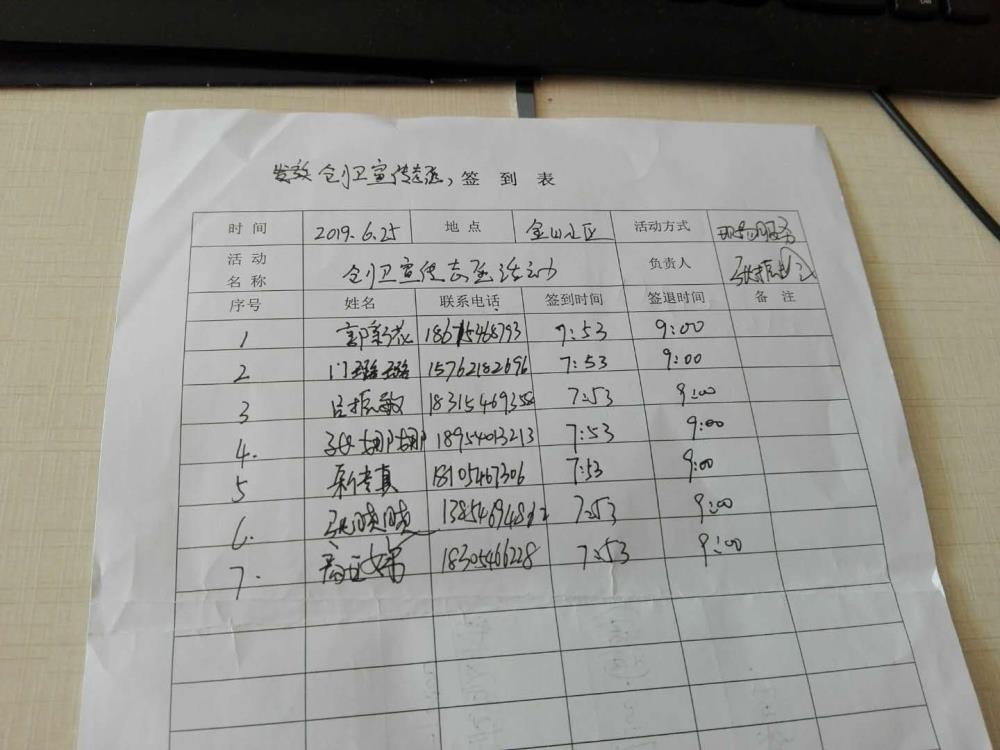 发放创卫宣传志愿, 签到表
时间 2019.6.25 地点 金山社区 活动方式 服务
活动名称 创卫宣传志愿活动 负责人 张振
序号 姓名 联系电话 签到时间 签退时间 备注
1 郭新花 18675468793 7:53 9:00
2 门璐璐 15762182696 7:53 9:00
3 吕振敏 18315469358 7:53 9:00
4. 张娜娜 18954013213 7:53 9:00
5 真 18105467306 7:53 9:00
6. 张晓晓 7:53 9:00
7. 18305466228 7:53 9:00